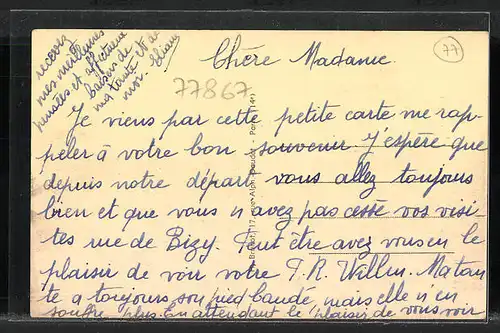 Chère Madame.
77
77867
Je viens par cette petite carte me rap-
peler à votre bon souvenir J'espère que
depuis notre départ vous allez toujours
bien et que vous n'avez pas cessé vos visi-
tes rue de Bizy. Peut être avez vous eu le
plaisir de voir votre T. R. Willm. Ma tan
te a toujours son pied bandé, mais elle n'en
souffre plus. En attendant le plaisir de vous voir
recevez
mes meilleures
pensées et affectueux
baisers de
ma tante et de
moi. Eliane